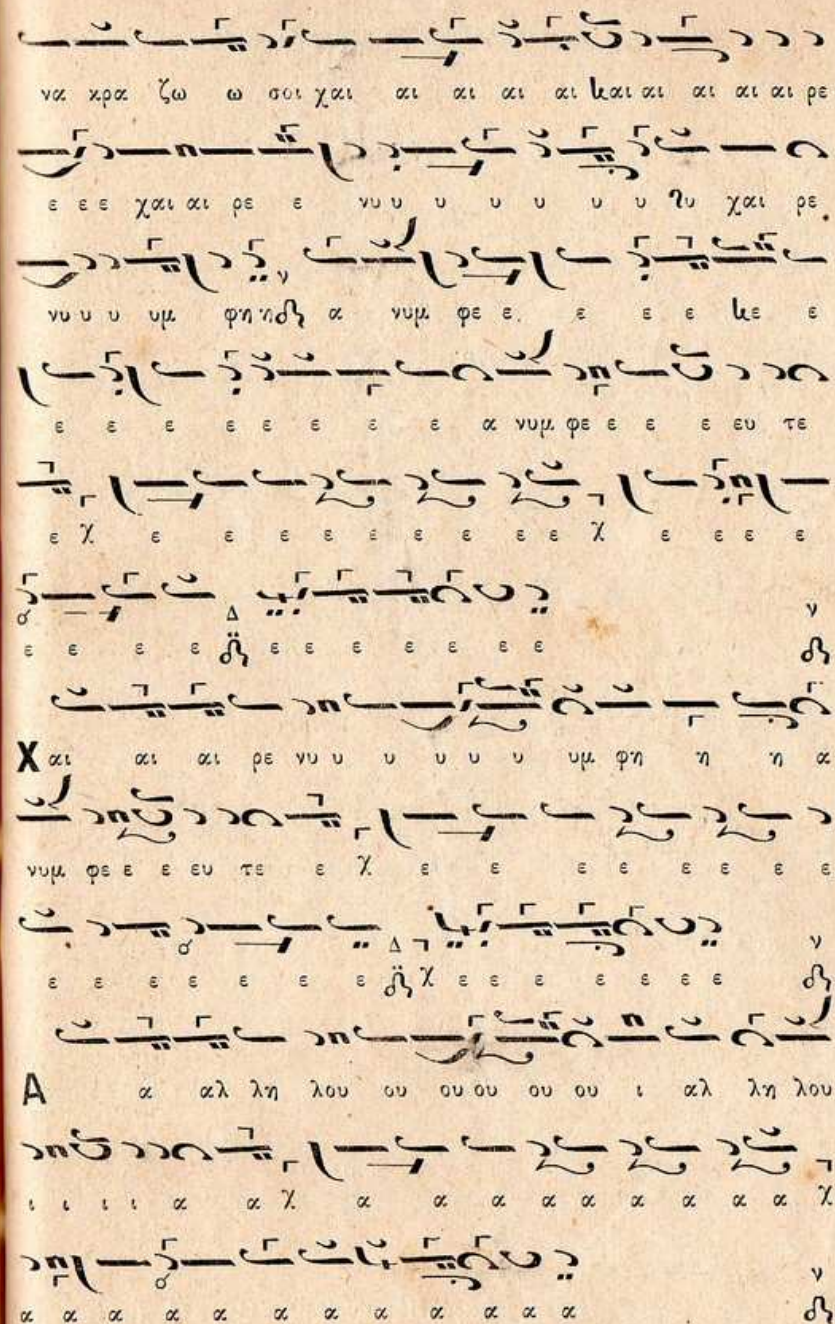 να κρα ζω ω σοι χαι αι αι αι αι και αι αι αι αι ρε
ε ε ε χαι αι ρε ε νυ υ υ υ υ υ υ υ χαι ρε
νυ υ υ υμ φη η α νυμ φε ε ε ε ε κε ε
ε ε ε ε ε ε ε ε α νυμ φε ε ε ε ευ τε
ε χ ε ε ε ε ε ε ε ε ε χ ε ε ε ε
ε ε ε ε Δ ε ε ε ε ε ε ε ν
Χαι αι αι ρε νυ υ υ υ υ υ υμ φη η η α
νυμ φε ε ε ευ τε ε χ ε ε ε ε ε ε ε ε
ε ε ε ε ε ε ε Δ χ ε ε ε ε ε ε ε ν
Α α αλ λη λου ου ου ου ου ου ι αλ λη λου
ι ι ι ι α α χ α α α α α α α α α χ
α α α α α α α α α α α α ν